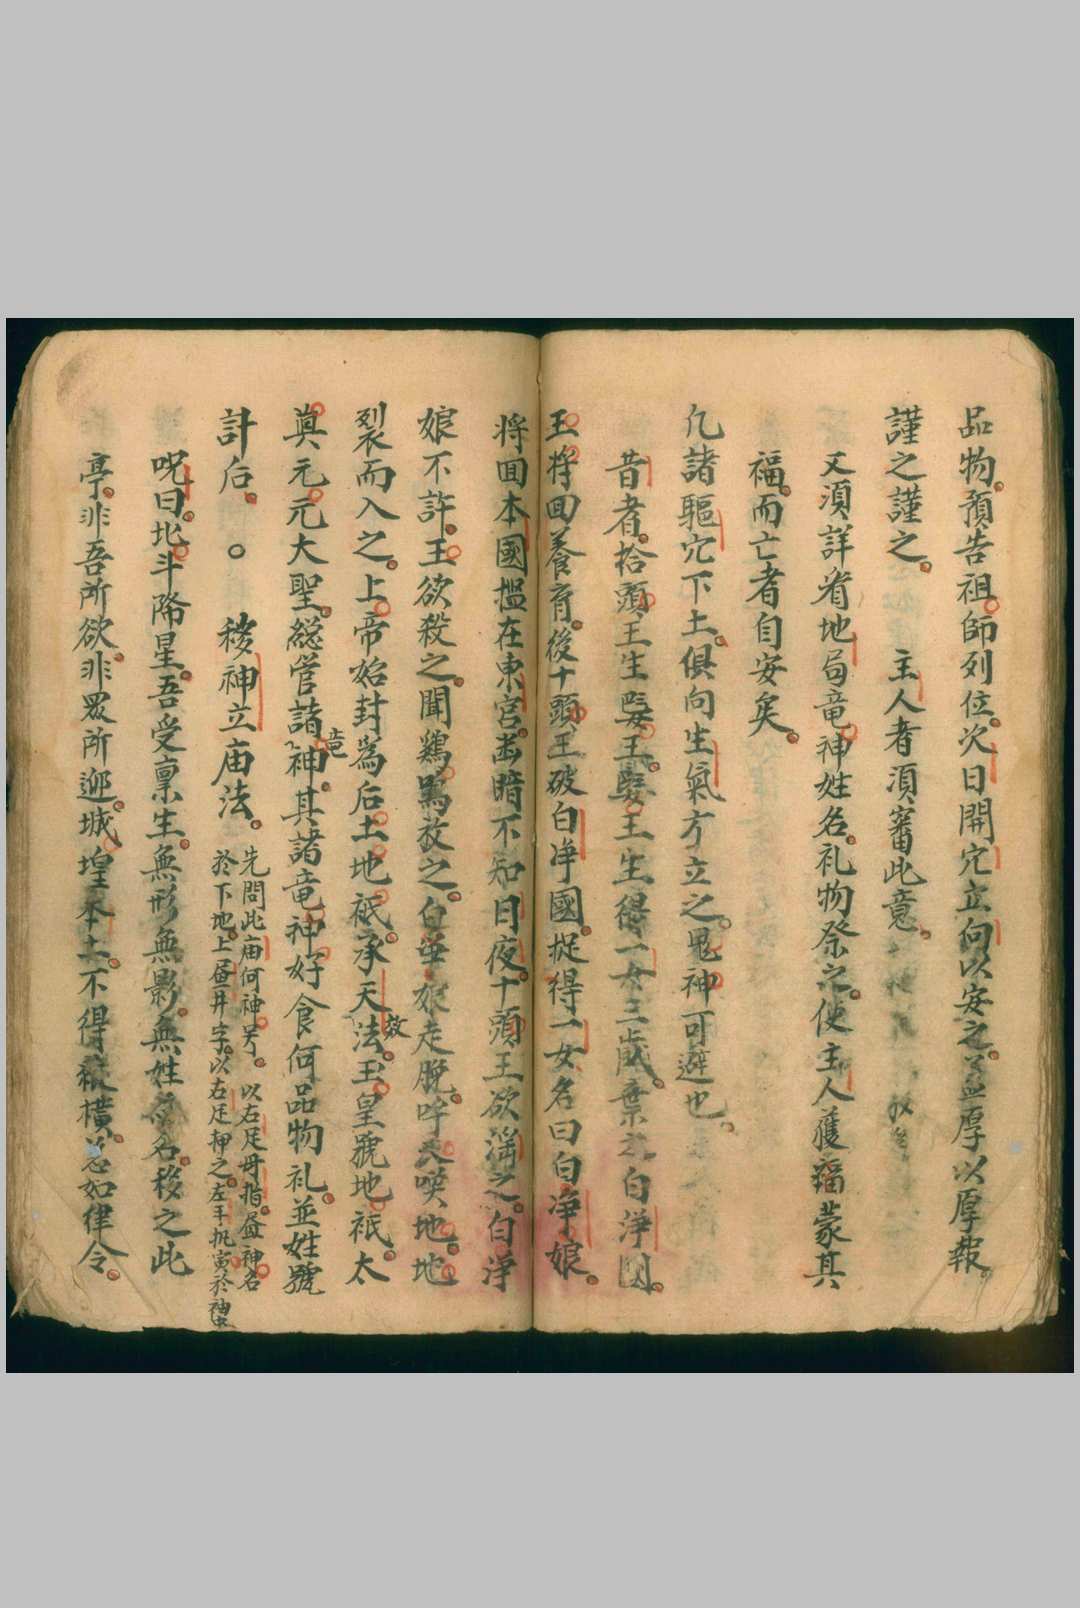 品物預告祖師列位次日開穴立向以安之益厚以厚報
謹之謹之 主人者須審此意
又須詳省地局竜神姓名礼物祭之使主人獲福蒙其
福而亡者自安矣
凢諸驅穴下土俱向生氣方立之鬼神可避也
昔者拾頭王生婜王婜王生得一女三歲棄之白淨国
王将回养育後十頭王破白净國捉得一女名曰白净娘
将囬本國搵在東宮出暗不知日夜十頭王欲滛之白淨
娘不許王欲殺之聞鷄鳴放之白華娘走脫呼天嘆地地
裂而入之上帝始封爲后土地祇承天放法玉皇號地祇太
眞元元大聖緫管諸竜神其諸竜神好食何品物礼並姓號
計后○ 移神立庙法
先問此庙何神号 以右足母指畫神名
於下地上畫井字以右足押之左手执寅於神
呪曰北斗降星吾受禀生無形無影無姓無名移之此
亭非吾所欲非眾所迎城隍本土不得縱橫急如律令